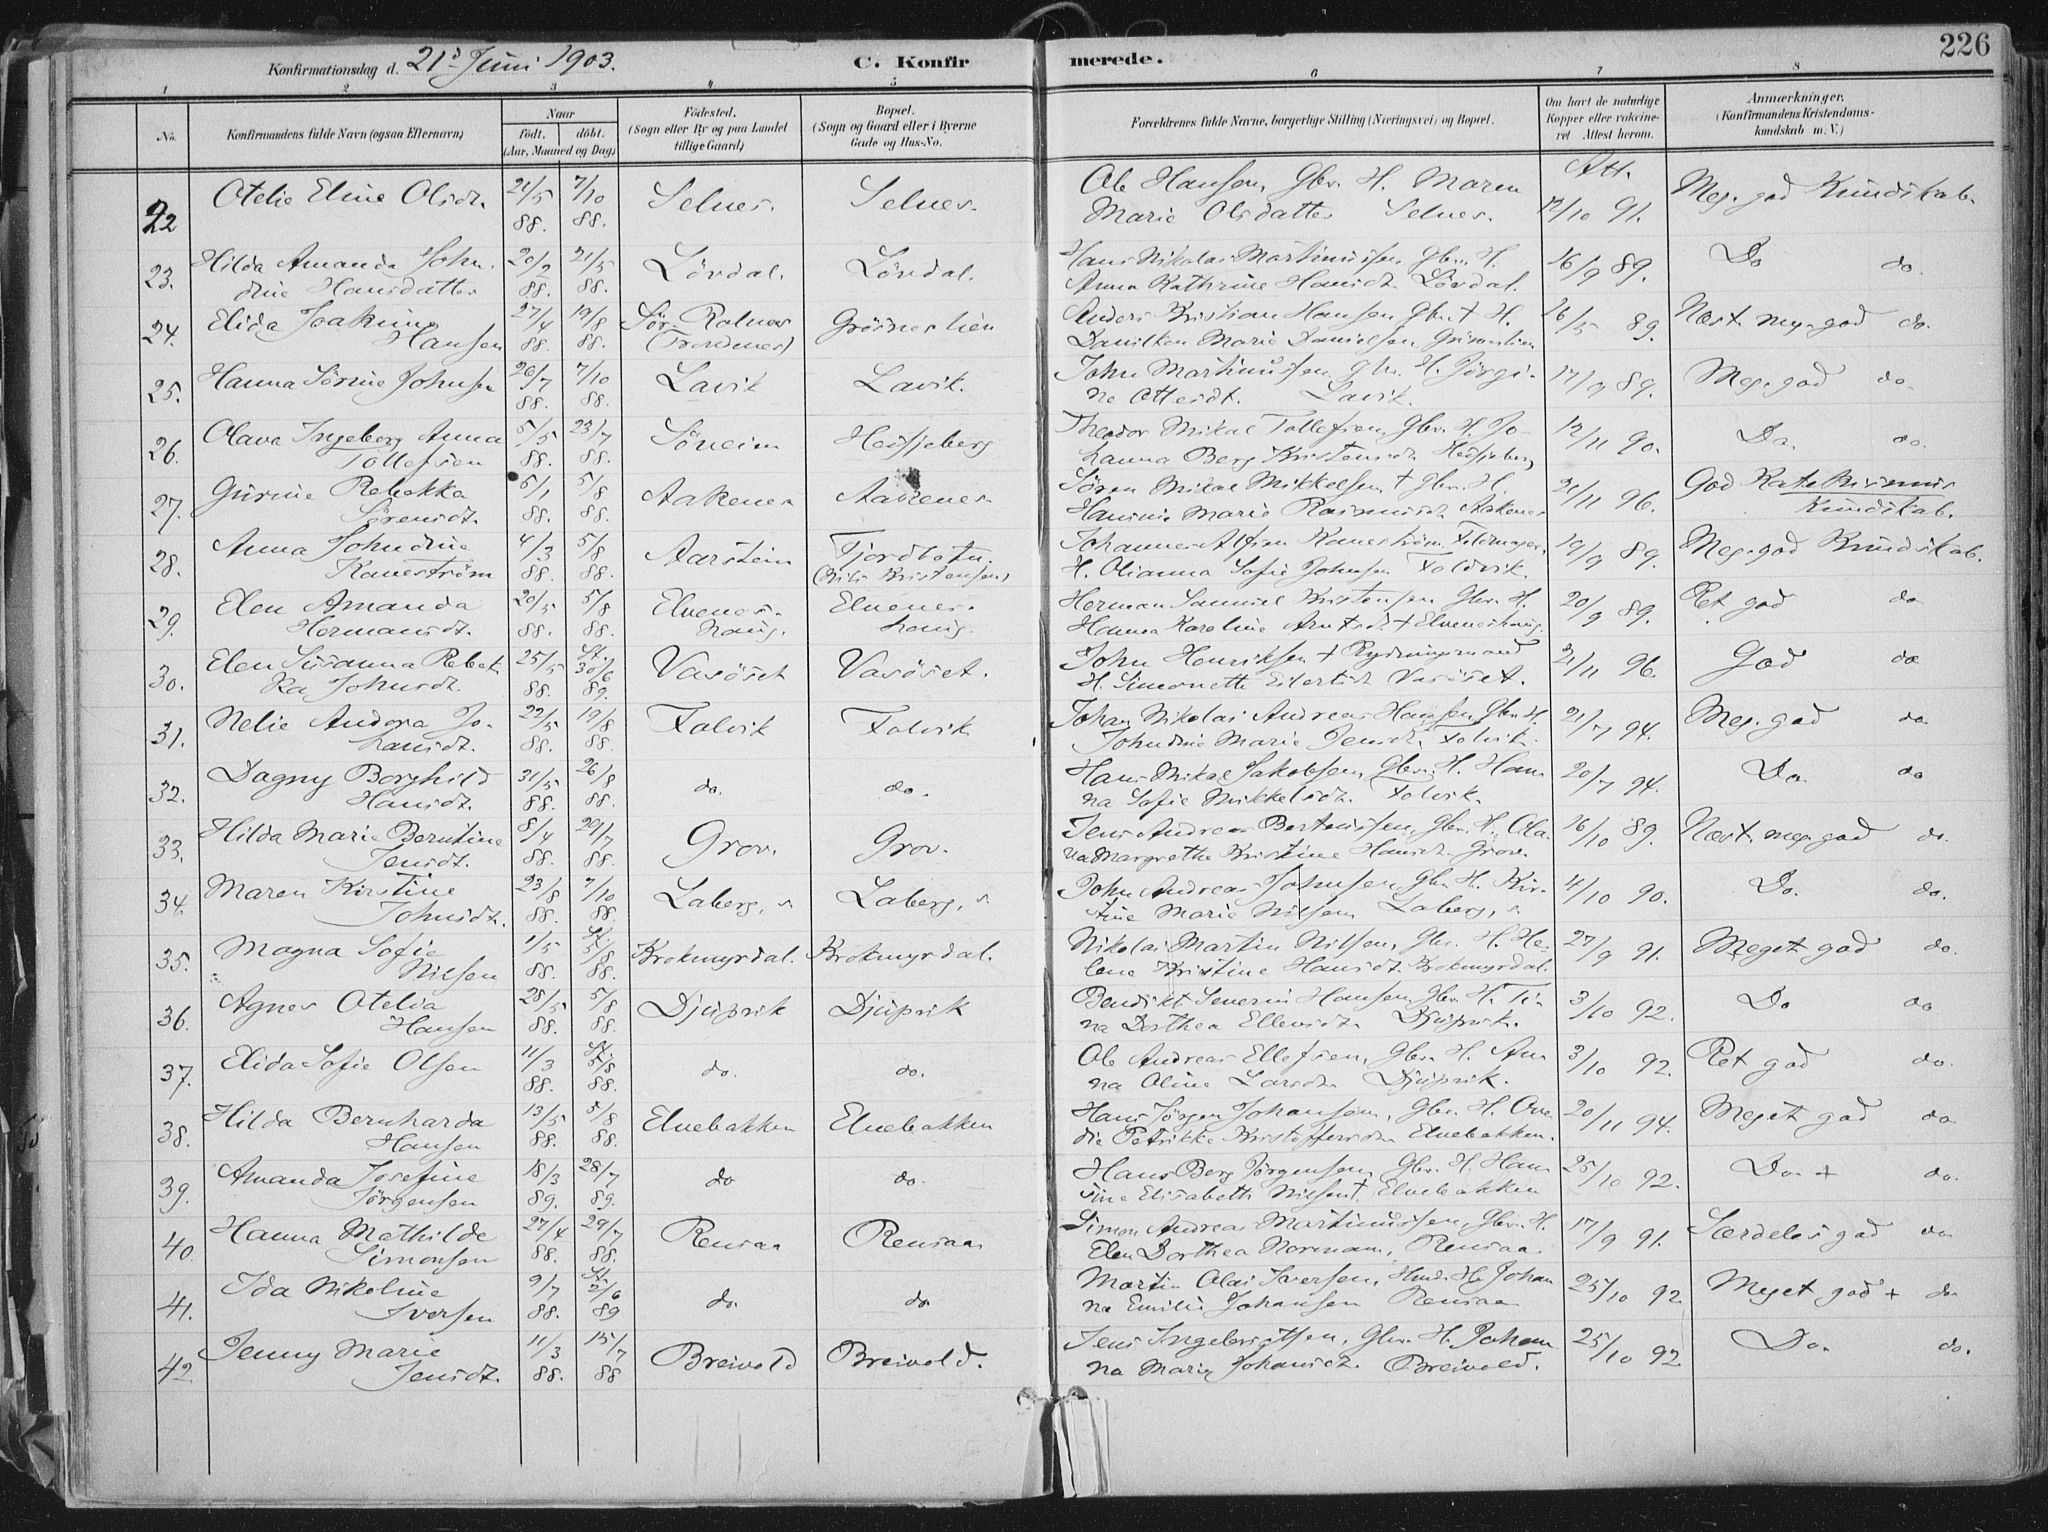 226
Konfirmationsdag d. 21de Juni 1903. C. Konfirmerede.
1 2 3 4 5 6 7 8
No. Konfirmandens fulde Navn (ogsaa Efternavn) Naar født. døbt. (Aar, Maaned og Dag) Födested. (Sogn eller By og paa Landet tillige Gaard) Bopæl. (Sogn og Gaard eller i Byerne Gade og Hus-No. Forældrenes fulde Navne, borgerlige Stilling (Næringsvei) og Bopæl. Om havt de naturlige Kopper eller vaccineret Attest herom. Anmærkninger. (Konfirmandens Kristendomskundskab m. V.)
22 Otelie Eline Olsdt. 21/5 88. 7/10 88. Selnes. Selnes. Ole Hansen, Gbr. H. Maren Att.
Marie Olsdatter Selnes. 12/10 91. Meg. god Kundskab.
23. Hilda Amanda Johndine Hansdatter 20/2 88. 21/5 88. Lövdal. Lövdal. Hans Nikolai Martinussen, Gbr. H.
Anna Kathrine Hansdt. Lövdal. 16/9 89. Do do.
24. Elida Joakime Hansen 27/4 88. 19/8 88. Sör Rolnes (Trondenes) Grösneslien Anders Kristian Hansen Gbr. + H.
Marie Danielsen 26/5 89. Næst. meg. god do.
25. Hanna Sörine Johnsen 26/7 88. 7/10 88. Lavik Lavik. John Martinussen, Gbr. H. Jörgine
Ottesdt. Lavik. 17/9 89. Meg. god do.
26. Olava Ingeborg Anna Tollefsen 5/5 88. 23/7 88. Hessjeberg Theodor Mikal Tollefsen, Gbr. H. Johanna
Berg Kristensdt. Hessjeberg 12/11 90. Do. do.
27. Gurine Rebekka Sörensdt. 5/1 88. 5/8 88. Aakenes Aakenes Sören Mikal Mikkelsen, + Gbr. H.
Hansine Marie Rasmusdt. Aakenes 21/11 96. God Katekismus Kundskab.
28. Anna Johndine Kanestrøm 4/3 88. 5/8 88. Aarstein Fjordbotn. (Nils Kristensen) Johannes Kanestrøm,
H. Olianna Sofie Johnsen Foldvik. 19/9 89. Meg. god Kundskab.
29. Elen Amanda Hermansdt. 20/5 88. 5/8 88. Elvenes. haug. Elvenes. haug. Herman Samuel Kristensen Gbr. H.
Hanna Karoline Arntsdt + Elveneshaug. 20/9 89. Ret god do
30. Elen Susanna Rebekka Johnsdt. 25/5 88. St. 30/6 89. Vasöset Vasöset. John Henriksen + Rydningsmand
H. Simonette Eilertsdt. Vasöset. 21/11 96. God do
31. Nelie Andora Johansdt. 22/5 88. 19/8 88. Folvik Folvik Johan Nikolai Andreas Hansen, Gbr. H.
Johndine Marie Jensdt. Folvik. 21/7 94. Meg. god do
32. Dagny Borghild Hansdt. 31/5 88. 26/8 88. do. do. Hans Mikal Jakobsen, Gbr. H. Hanna
Sofie Mikkelsdt. Folvik. 20/7 94. Do. do
33. Hilda Marie Berntine Jensdt. 8/4 88. 29/7 88. Grov. Grov. Jens Andreas Berteussen, Gbr. H. Olana
Margrethe Kristine Hansdt. Grov. 16/10 89. Næst. meg. god do.
34. Maren Kirstine Johnsdt. 23/8 88. 7/10 88. Laberg, s. Laberg, s. John Andreas Johnsen, Gbr. H. Kirstine
Marie Nilsen Laberg, s. 4/10 90. Do. do.
35. Magna Sofie Nilsen 1/5 88. St. 5/8 88. Krokmyrdal. Krokmyrdal. Nikolai Martin Nilsen, Gbr. H. Helene
Kristine Hansdt. Krokmyrdal. 27/9 91. Meget god do.
36. Agnes Otelia Hansen 28/5 88. 5/8 88. Djupvik Djupvik Bendikt Severin Hansen, Gbr. H. Tina
Dorthea Ellevsdt. Djupvik. 3/10 92. Do do
37. Elida Sofie Olsen 11/3 88. St. 5/8 88. do. do. Ole Andreas Ellefsen, Gbr. H. Anna
Oline Larsdt. Djupvik. 3/10 92. Ret god do.
38. Hilda Bernharda Hansen 13/5 88. 5/8 88. Elvebakken Elvebakken Hans Jörgen Johansen, Gbr. H. Ovedie
Petrikke Kristoffersdt. Elvebakken. 20/11 94. Meget god do
39. Amanda Josefine Jörgensen 18/3 89. 28/7 89. do do. Hans Berg Jörgensen, Gbr. H. Hansine
Elisabeth Nilsen + Elvebakken 25/10 92. Do. + do.
40. Hanna Mathilde Simonsen 27/4 88. 29/7 88. Rensaa Rensaa Simon Andreas Martinussen, Gbr. H.
Elen Dorthea Normann, Rensaa. 17/9 91. Særdeles god do
41. Ida Nikoline Iversen 9/7 88. St. 2/6 89 do. do. Martin Olai Iversen, Husm. H. Johanna
Emilie Johansen Rensaa 25/10 92. Meget god + do
42. Jenny Marie Jensdt. 11/3 88. 15/7 88 Breivold Breivold. Jens Ingebrigtsen, Gbr. H. Johanna
Marie Johansdt. Breivold. 25/10 92. Do. do.